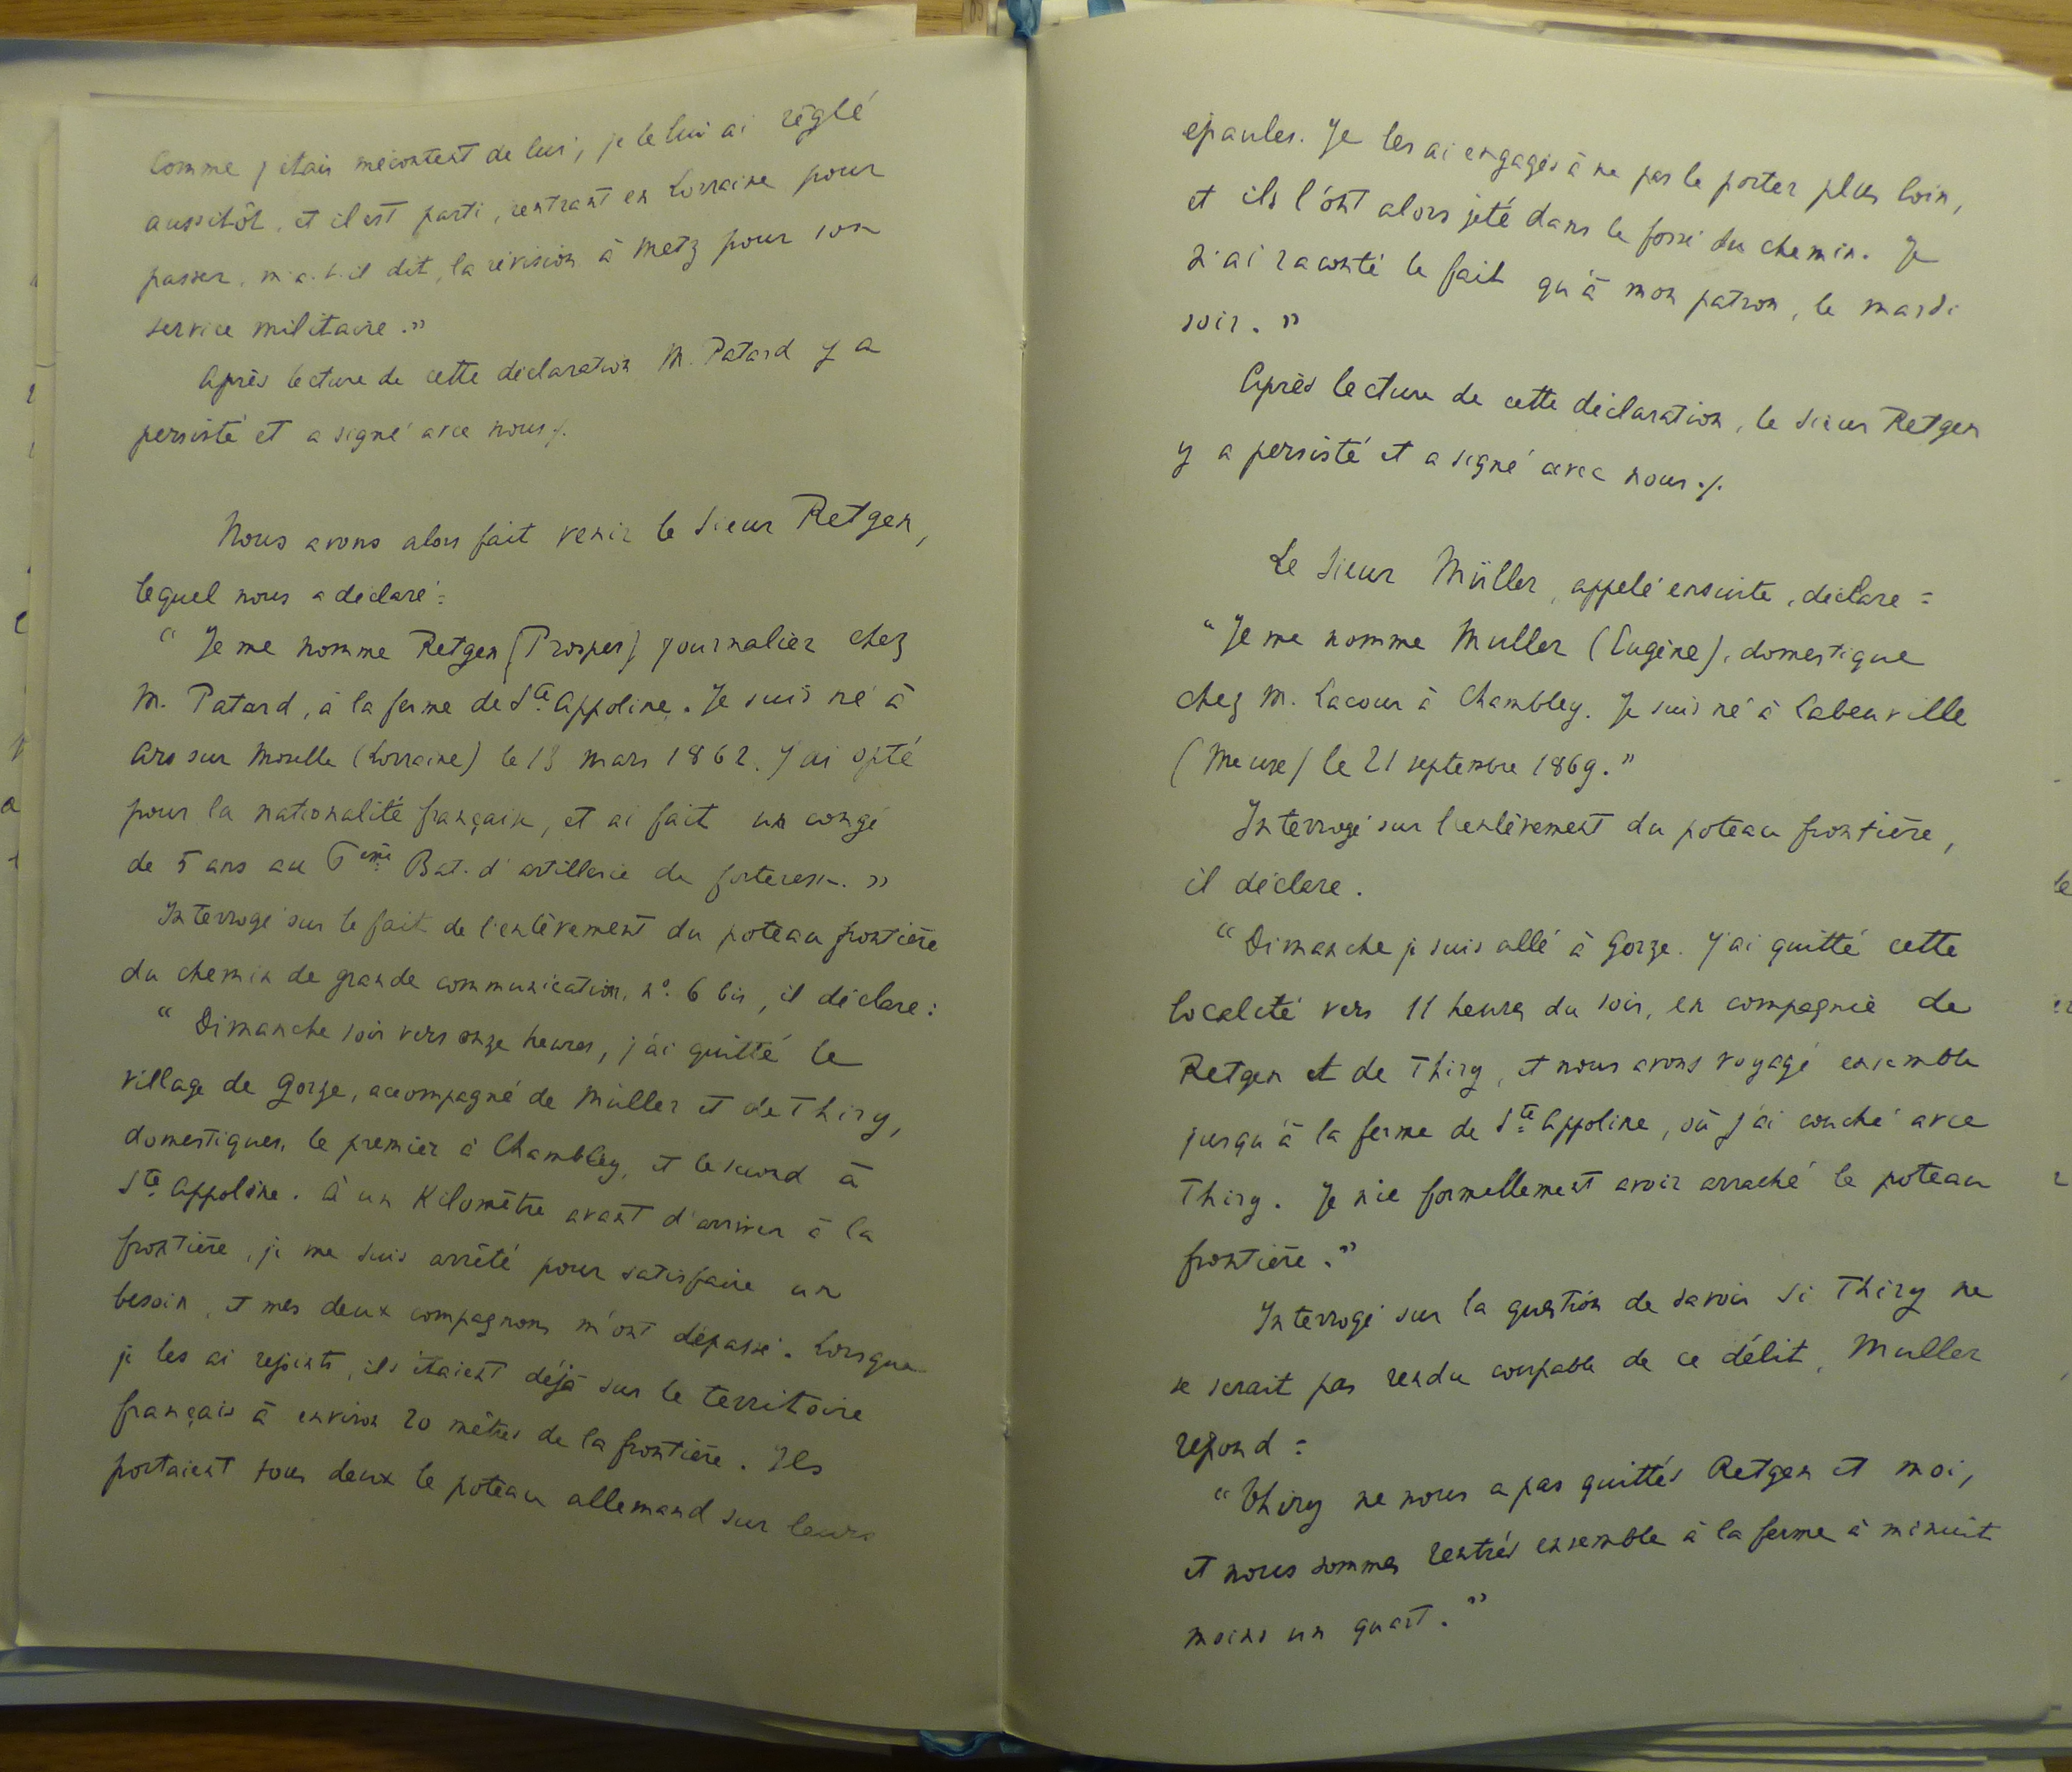 Comme j'étais mécontent de lui, je le lui ai réglé
aussitôt, et il est parti, rentrant en Lorraine pour
passer, m'a-t-il dit, la révision à Metz pour son
service militaire."
Après lecture de cette déclaration M. Patard y a
persisté et a signé avec nous ./.
Nous avons alors fait venir le Sieur Retgen,
lequel nous a déclaré :
" Je me nomme Retgen (Prosper) journalier chez
M. Patard, à la ferme de Ste Appoline. Je suis né à
Ars sur Moselle (Lorraine) le 13 mars 1862. J'ai opté
pour la nationalité française, et ai fait un congé
de 5 ans au 6ème Bat. d'artillerie de forteresse. "
Interrogé sur le fait de l'enlèvement du poteau frontière
du chemin de grande communication, n° 6 bis, il déclare :
" Dimanche soir vers onze heures, j'ai quitté le
village de Gorze, accompagné de Müller et de Thiry,
domestiques, le premier à Chambley, et le second à
Ste Appoline. À un Kilomètre avant d'arriver à la
frontière, je me suis arrêté pour satisfaire un
besoin, et mes deux compagnons m'ont dépassé. Lorsque
je les ai rejoints, ils étaient déjà sur le territoire
français à environ 20 mètres de la frontière. Ils
portaient tous deux le poteau allemand sur leurs
épaules. Je les ai engagés à ne pas le porter plus loin,
et ils l'ont alors jeté dans le fossé du chemin. Je
n'ai raconté le fait qu'à mon patron, le mardi
soir. "
Après lecture de cette déclaration, le Sieur Retgen
y a persisté et a signé avec nous ./.
Le Sieur Müller, appelé ensuite, déclare :
" Je me nomme Muller (Eugène), domestique
chez M. Lacour à Chambley. Je suis né à Labeuville
(Meuse) le 21 septembre 1869."
Interrogé sur l'enlèvement du poteau frontière,
il déclare.
" Dimanche je suis allé à Gorze. J'ai quitté cette
localité vers 11 heures du soir, en compagnie de
Retgen et de Thiry, et nous avons voyagé ensemble
jusqu'à la ferme de Ste Appoline, où j'ai couché avec
Thiry. Je nie formellement avoir arraché le poteau
frontière."
Interrogé sur la question de savoir si Thiry ne
se serait pas rendu coupable de ce délit, Muller
répond :
" Thiry ne nous a pas quittés Retgen et moi,
et nous sommes rentrés ensemble à la ferme à minuit
moins un quart. "